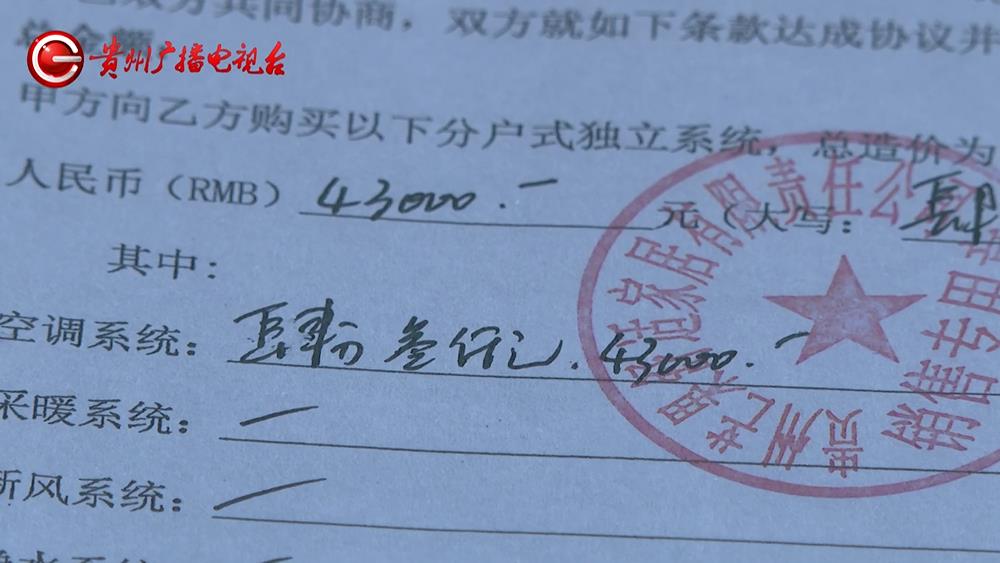 乙双方共同协商，双方就如下条款达成协议并
贵州广播电视台
甲方向乙方购买以下分户式独立系统，总造价为
人民币（RMB）43000.— 元（大写：肆
其中：
空调系统：肆万叁仟元.43000.—
采暖系统：—
新风系统：—
家居有限责任公
销售专用章